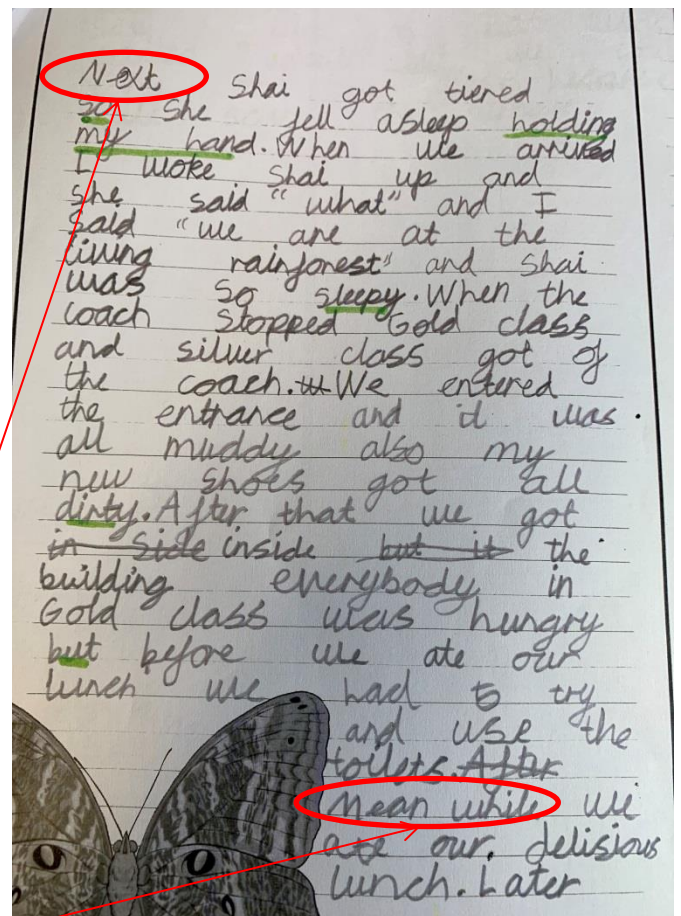 Next Shai got tiered
so she fell asleep holding
my hand. When we arrived
I woke Shai up and
she said "what" and I
said "we are at the
living rainforest" and Shai
was so sleepy. When the
coach stopped Gold class
and silver class got of
the coach. We entered
the entrance and it was
all muddy also my
new shoes got all
dirty. After that we got
in side inside but it the
building everybody in
Gold class was hungry
but before we ate our
lunch we had to try
and use the
toilets. After
Mean while we
ate our delisious
lunch. Later